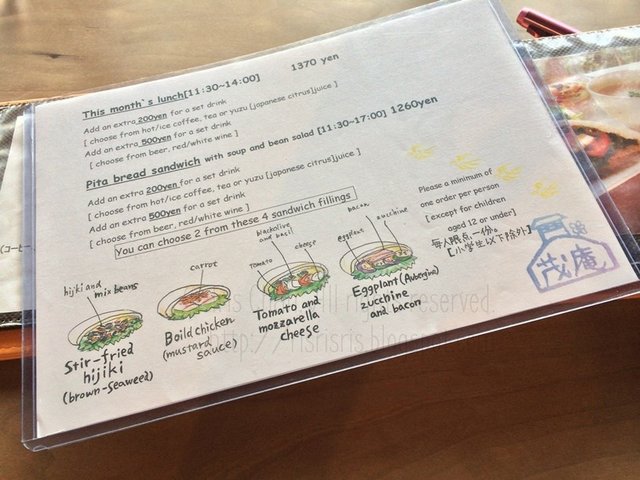 This month`s lunch[11:30~14:00] 1370 yen
Add an extra 200yen for a set drink
[ choose from hot/ice coffee, tea or yuzu [japanese citrus]juice ]
Add an extra 500yen for a set drink
[ choose from beer, red/white wine ]
Pita bread sandwich with soup and bean salad [11:30~17:00] 1260yen
Add an extra 200yen for a set drink
[ choose from hot/ice coffee, tea or yuzu [japanese citrus]juice ]
Add an extra 500yen for a set drink
[ choose from beer, red/white wine ]
You can choose 2 from these 4 sandwich fillings
Please a minimum of
one order per person
[except for children
aged 12 or under]
每人限点一份。
【小学生以下除外】
茂庵
hijiki and
mix beans
Stir-fried
hijiki
(brown-seaweed)
carrot
Boild chicken
(mustard
sauce)
tomato
blackolive
and basil
cheese
Tomato and
mozzarella
cheese
eggplant
bacon
zucchine
Eggplant (Aubergine)
zucchine
and bacon
(コーヒ